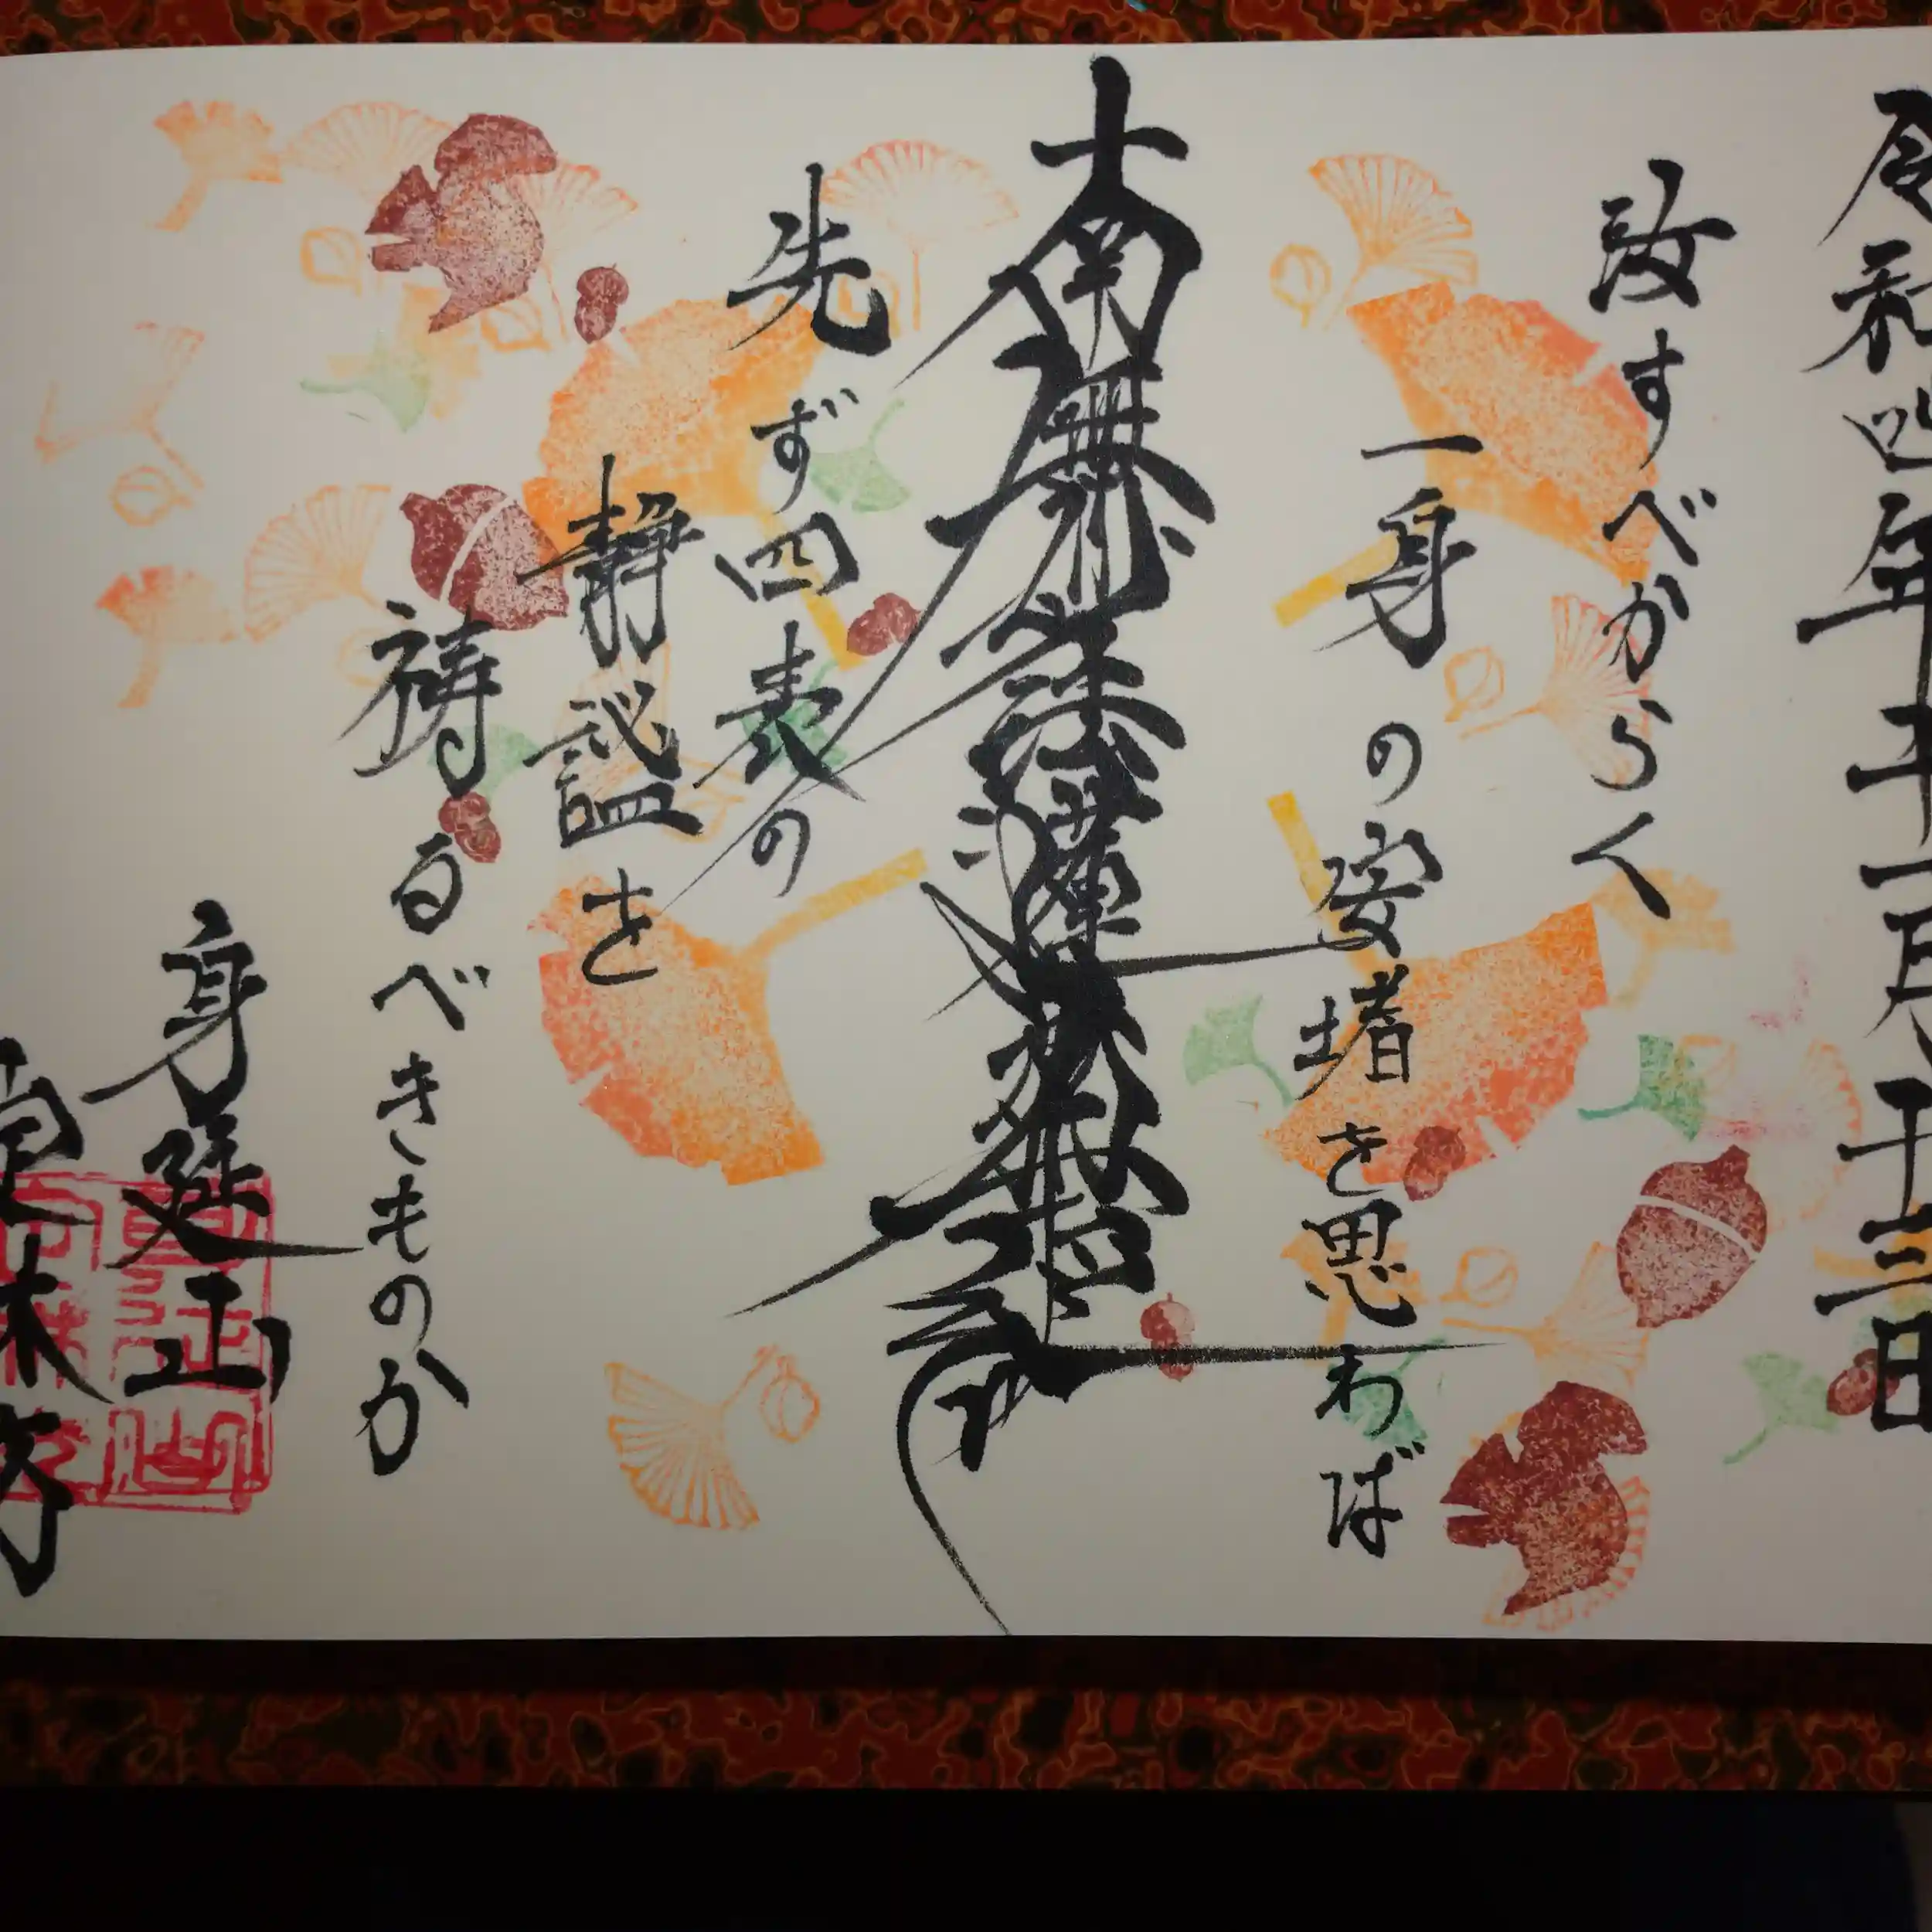 令和四年十二月十三日
汝すべからく
一身の安堵を思わば
南無妙法蓮華経
先ず四表の
静謐を
祷るべきものか
身延山
南木坊